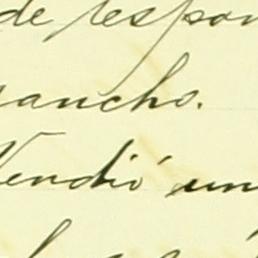 de respon
ancho.
Vendió un